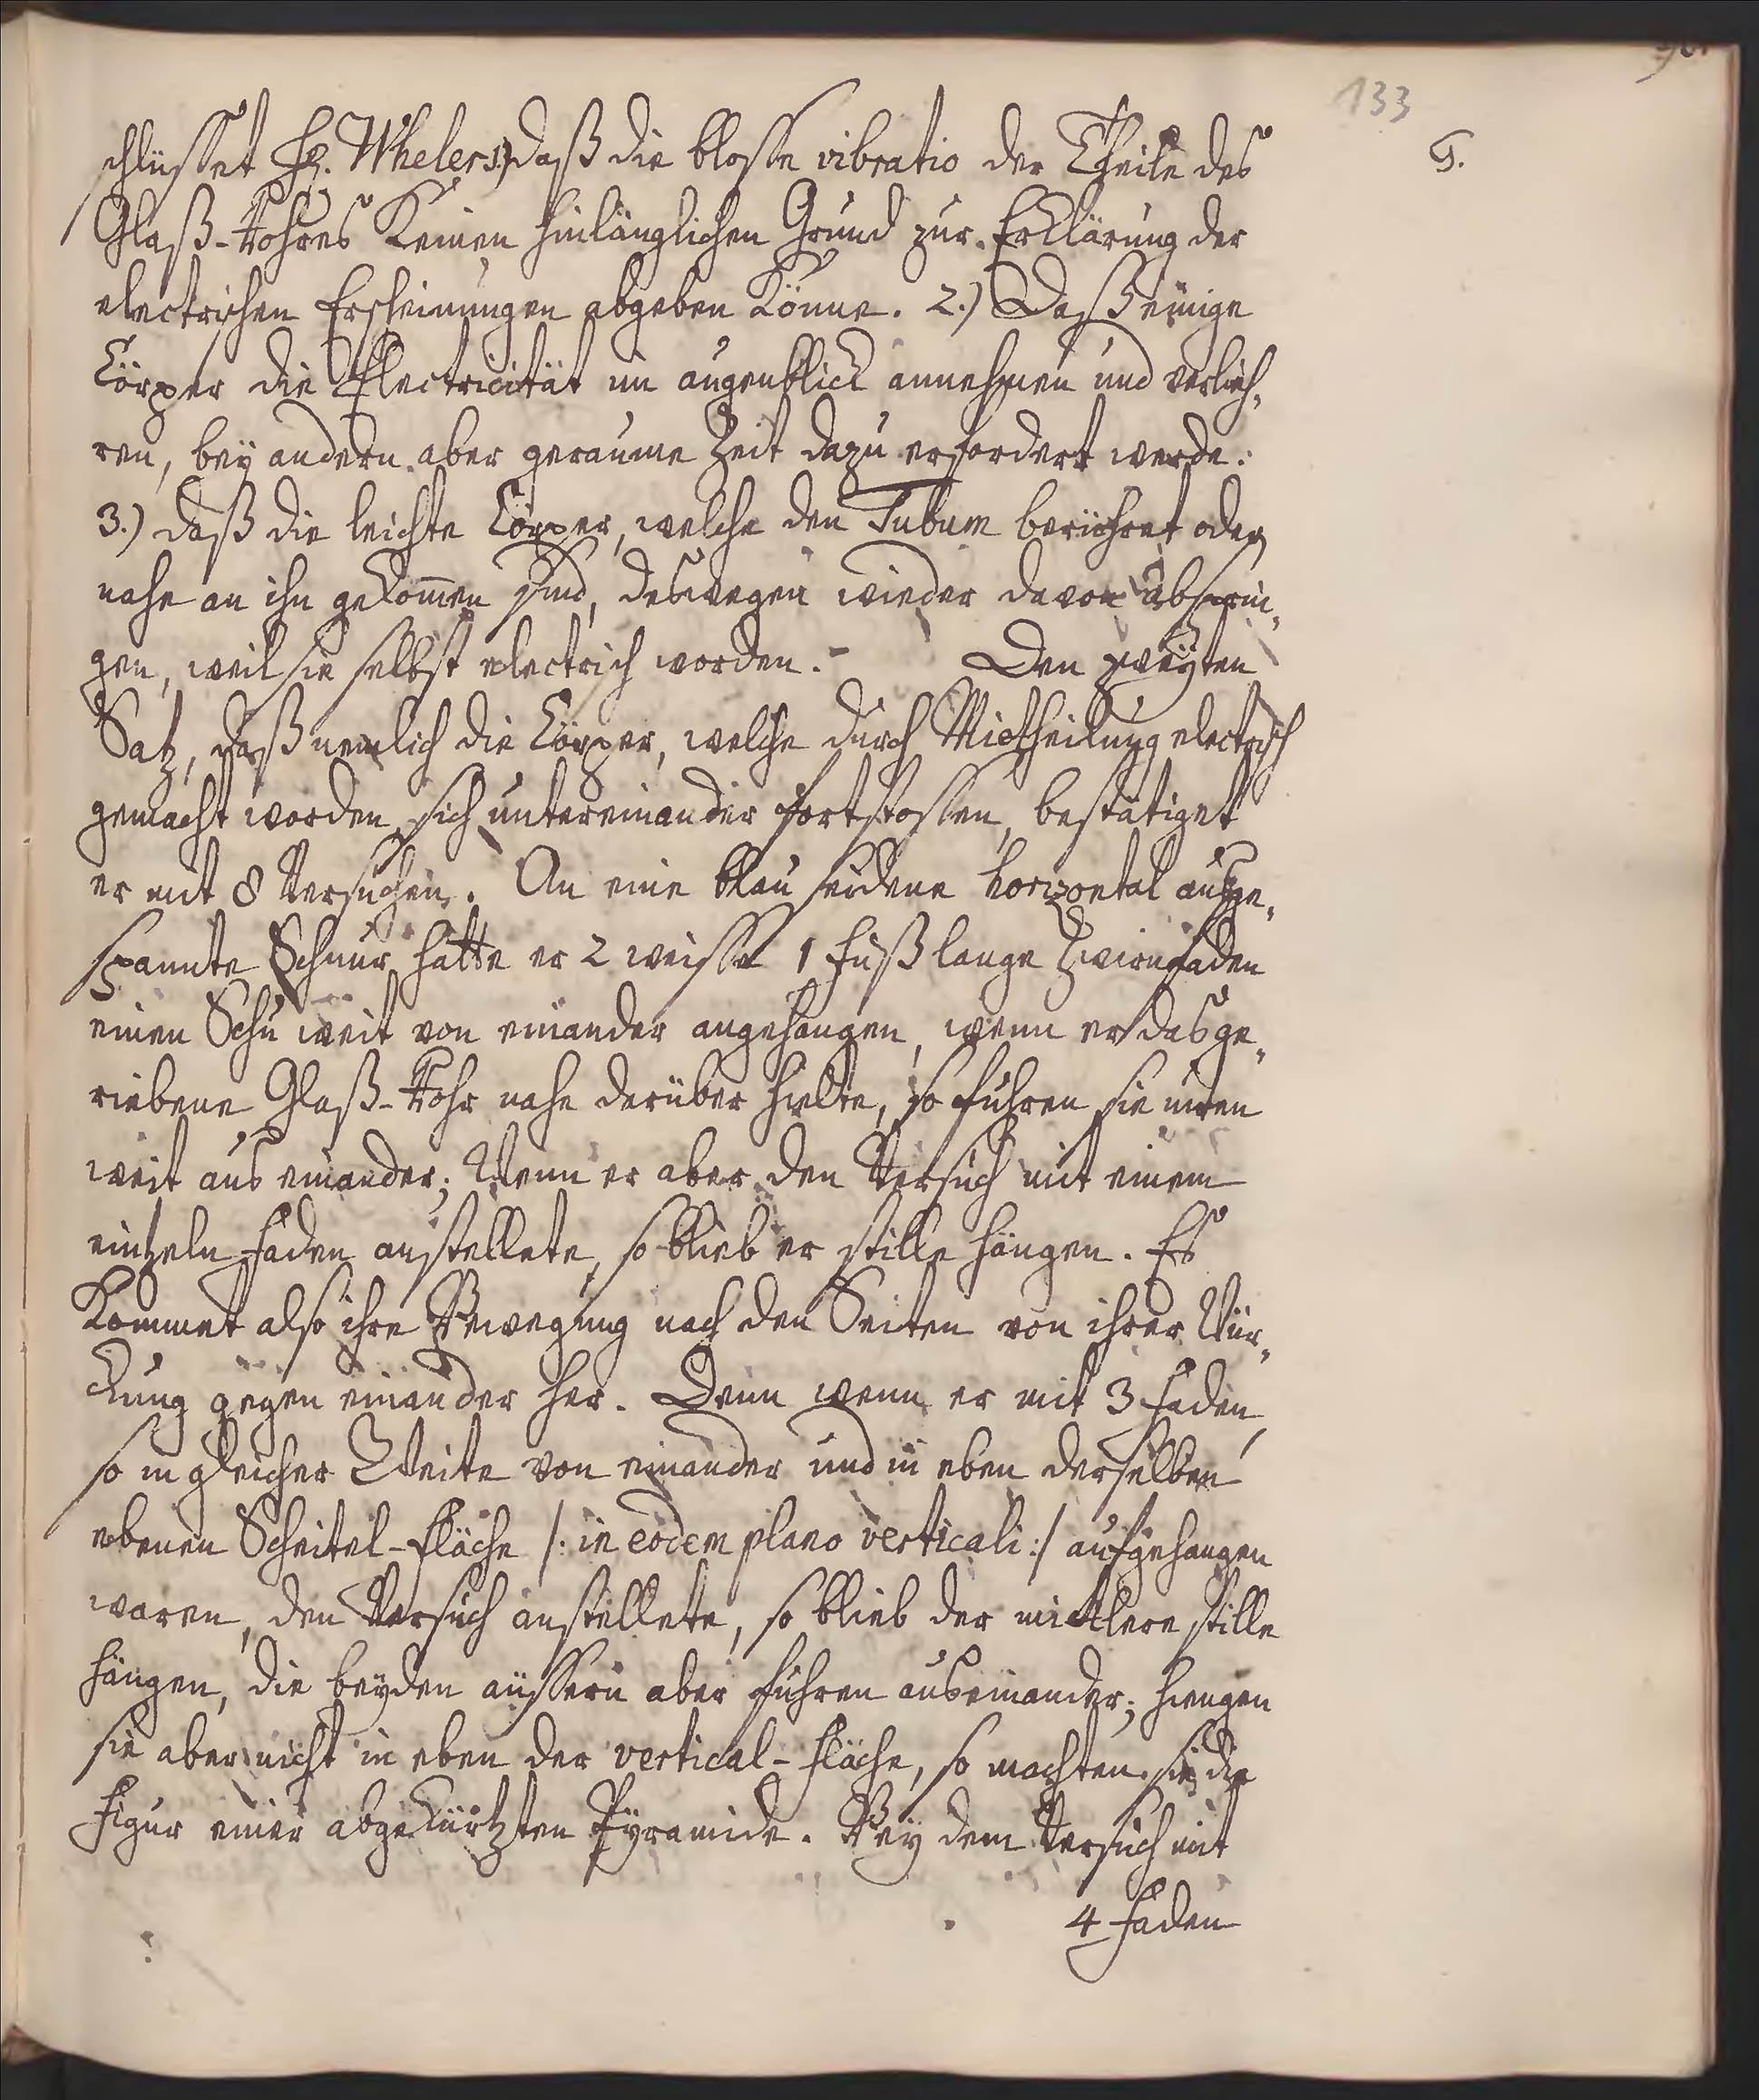 133
G.
schlüsset H. Whelers 1) daß die blosse vibratio der Theile des
Glaß-Rohres Keinen hinlänglichen Grund zur Erklärung der
electrischen Erscheinungen abgeben Könne. 2.) Daß einige
Cörper die Electricität im augenblick annehmen und verlieh-
ren, bey andern aber geraume Zeit dazu erfordert werde.
3.) daß die leichte Cörper, welche den Tubum berühret oder
nahe an ihn gekom̄en sind, deswegen wieder davon absprin-
gen, weil sie selbst electrisch worden. - Den zweyten
Satz, daß nemlich die Cörper, welche durch Mittheilung electrisch
gemacht worden, sich untereinander fortstossen, bestätiget
er mit 8 Versuchen. An eine blau seidene horizontal ausge-
spannte Schnur hatte er 2 weisse 1 Fuß lange Zwirnfaden
einen Schu weit von einander angehangen, wenn er das ge-
riebene Glaß-Rohr nahe darüber hielte, so fuhren sie unten
weit aus einander; Wenn er aber den Versuch mit einem
eintzeln Faden anstellete, so blieb er stille hängen. Es
Kommet also ihre Bewegung nach den Seiten von ihrer Wür-
ckung gegen einander her. Denn wenn er mit 3 Faden,
so in gleicher Weite von einander und in eben derselben
ebenen Scheitel-Fläche /: in eodem plano verticali :/ aufgehangen
waren, den Versuch anstellete, so blieb der mittlere stille
hängen, die beyden äussern aber fuhren auseinander; hiengen
sie aber nicht in eben der vertical-Fläche, so machten sie die
Figur einer abgekürtzten Pyramide. Bey dem Versuch mit
4 Faden